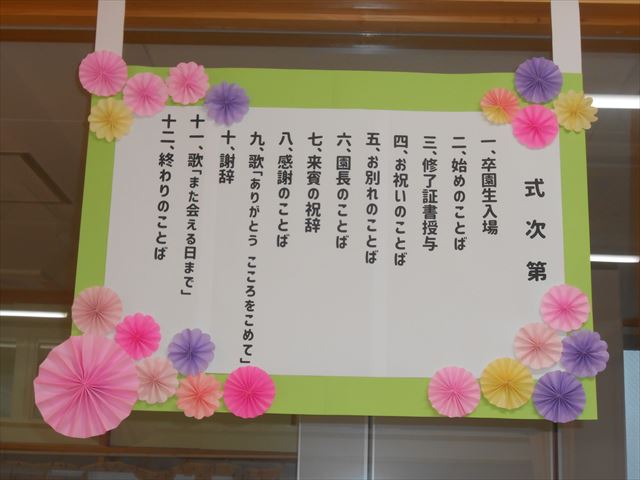 式次第
一、卒園生入場
二、始めのことば
三、修了証書授与
四、お祝いのことば
五、お別れのことば
六、園長のことば
七、来賓の祝辞
八、感謝のことば
九、歌「ありがとう こころをこめて」
十、謝辞
十一、歌「また会える日まで」
十二、終わりのことば